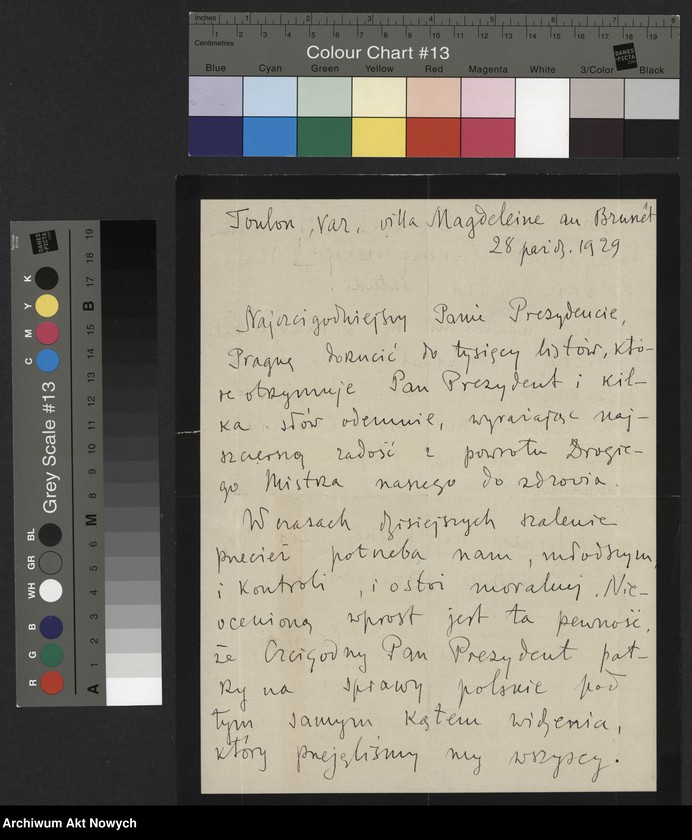 Inches 1 2 3 4 5 6 7 8
1 2 3 4 5 6 7 8 9 10 11 12 13 14 15 16 17 18 19
Centimetres
Colour Chart #13
DANES
PICTA
Blue Cyan Green Yellow Red Magenta White 3/Color Black
Toulon, Var, villa Magdeleine au Brunet
28 paźdz. 1929
Najczcigodniejszy Panie Prezydencie,
Pragnę dorzucić do tysięcy listów, któ-
re otrzymuje Pan Prezydent i kil-
ka słów odemnie, wyrażając naj-
szczerszą radość z powrotu Drogie-
go Mistrza naszego do zdrowia.
W czasach dzisiejszych szalenie
przecież potrzeba nam, młodszym,
i kontroli, i ostoi moralnej. Nie-
ocenioną wprost jest ta pewność,
że Czcigodny Pan Prezydent pat-
rzy na sprawy polskie pod
tym samym kątem widzenia,
który przejęliśmy my wszyscy.
Grey Scale #13
C M Y K
R G B WH GR BL
A 1 2 3 4 5 6 M 8 9 10 11 12 13 14 15 B 17 18 19
DANES
PICTA
Archiwum Akt Nowych